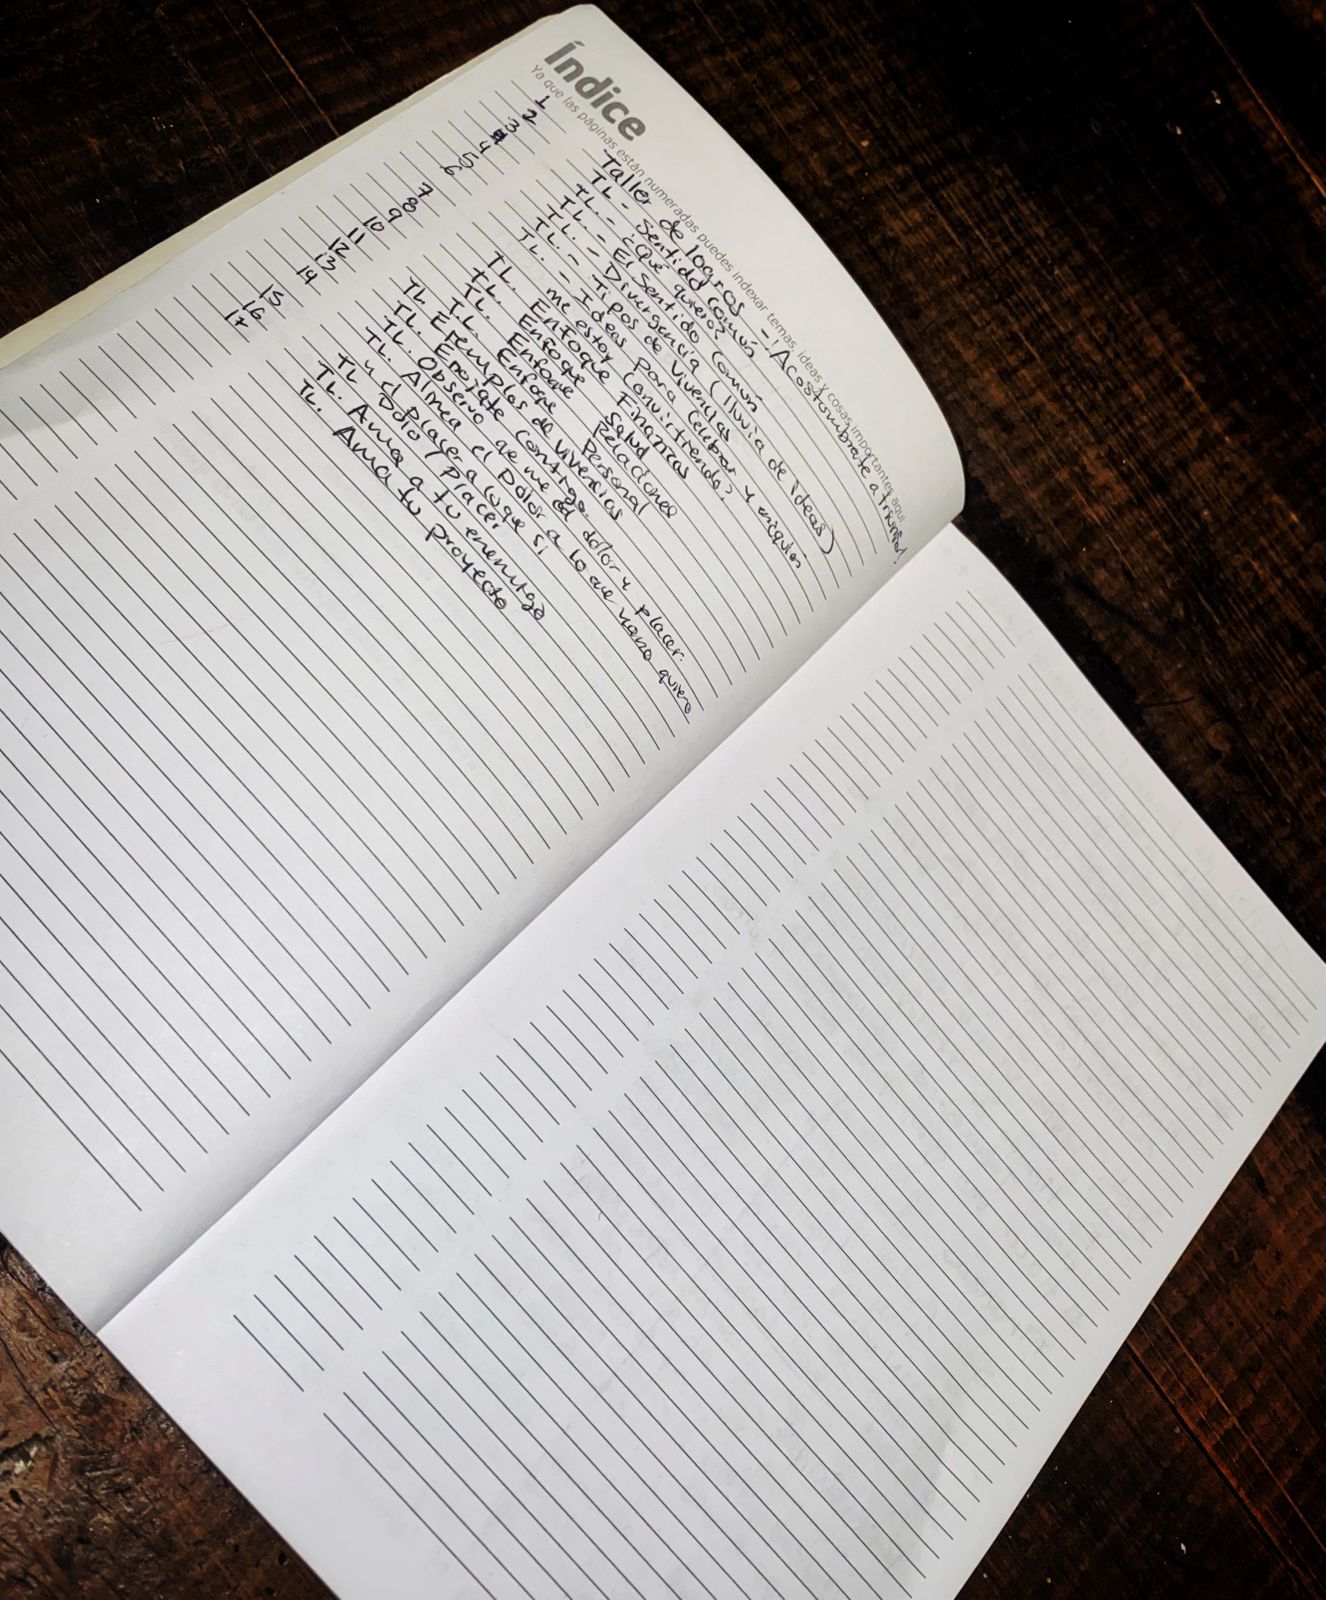 Índice
Ya que las páginas están numeradas puedes indexar temas, ideas y cosas importantes aquí
1 Taller de logros - ¡Acostumbrate a triunfar!
2 TL - Sentido común
3 TL. - ¿Qué quieres?
4 TL. - El Sentido Común
5 TL. - Divergencia (lluvia de Ideas)
6 TL. - Tipos de Vivencias
TL. - Ideas para Celebrar y
me estoy convirtiendo?
7 TL. Enfoque Finanzas
8 TL. Enfoque Salud
9 TL. Enfoque Relaciones
10 TL. Enfoque Personal
11 TL. Ejemplos de vivencias
12 TL. Empate contigo
13 TL. Observo que me da dolor y placer.
14 TL. Alinea el Dolor a lo que no quiero
y el placer a lo que si
15 TL Dolor y placer
16 TL. Ama a tu enemigo
17 TL. Ama tu proyecto